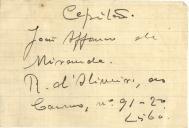 Capitão
João Affonso de
Miranda.
R. d'Oliveira, ao
Carmo, nº 91-2º
Lisboa.